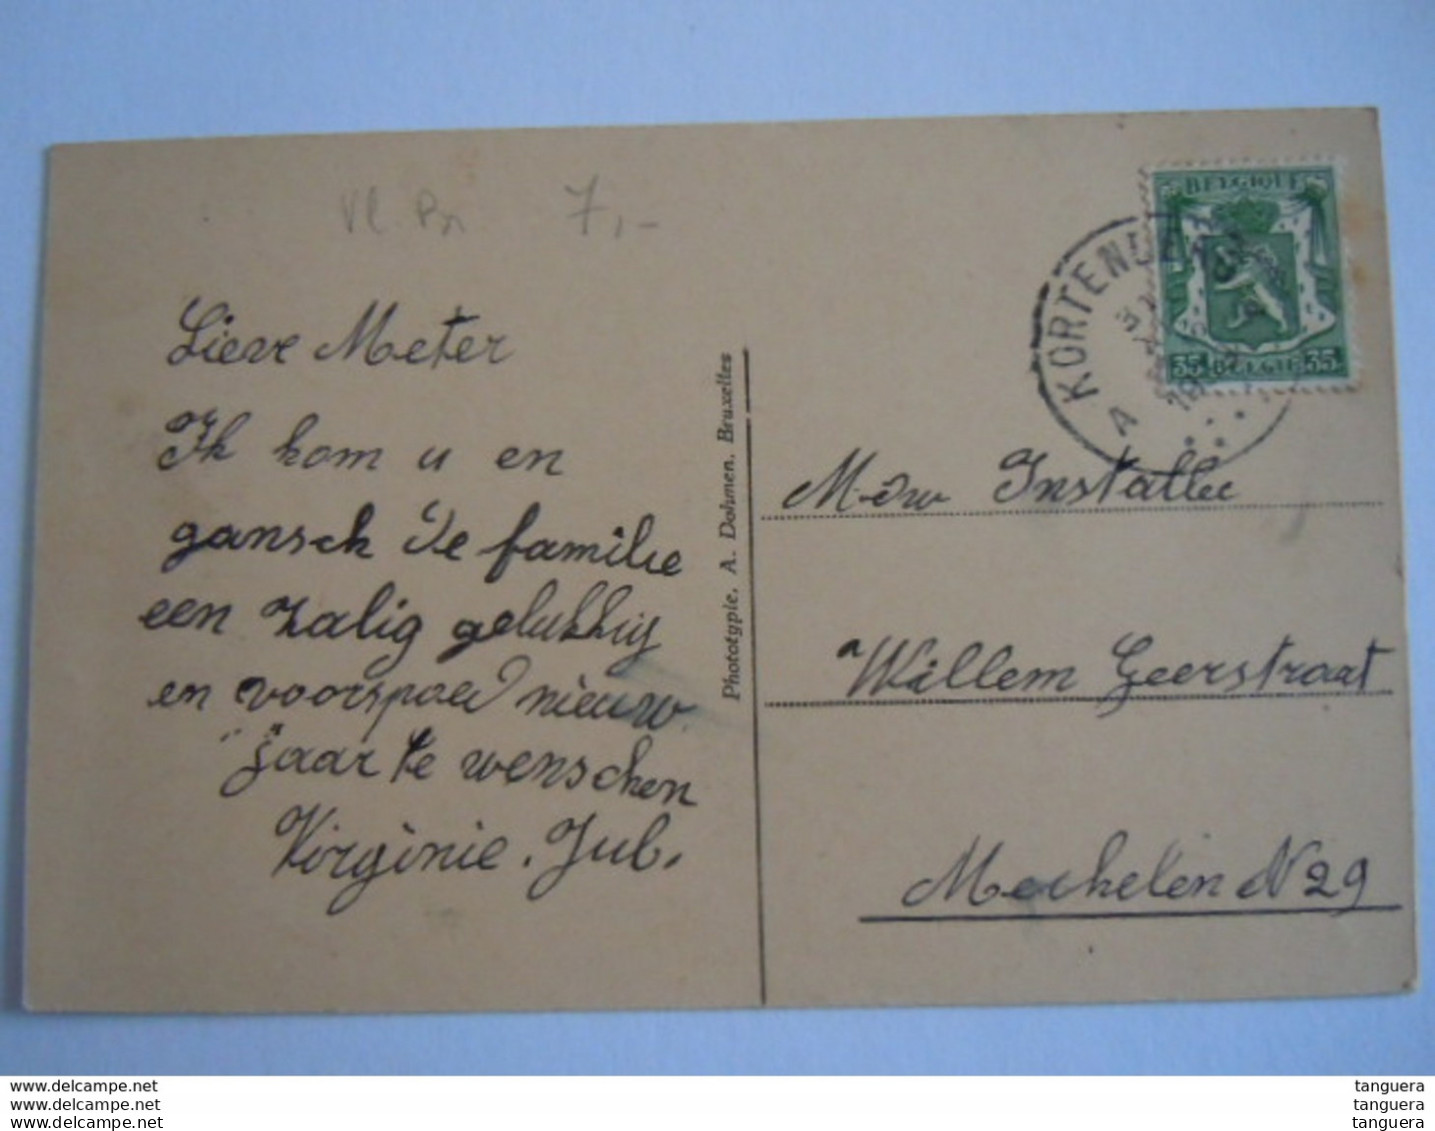 Vl. Br 7,-
Lieve Meter
Ik kom u en
gansch de familie
een zalig gelukkig
en voorspoed nieuw
jaar te wenschen
Virginie. Jul.
Phototypie, A. Dohmen, Bruxelles
BELGIQUE
35 BELGIE 35
KORTENBE
A
Mdw Installee
Willem Geerstraat
Mechelen N 29
www.delcampe.net
www.delcampe.net
www.delcampe.net
tanguera
tanguera
tanguera